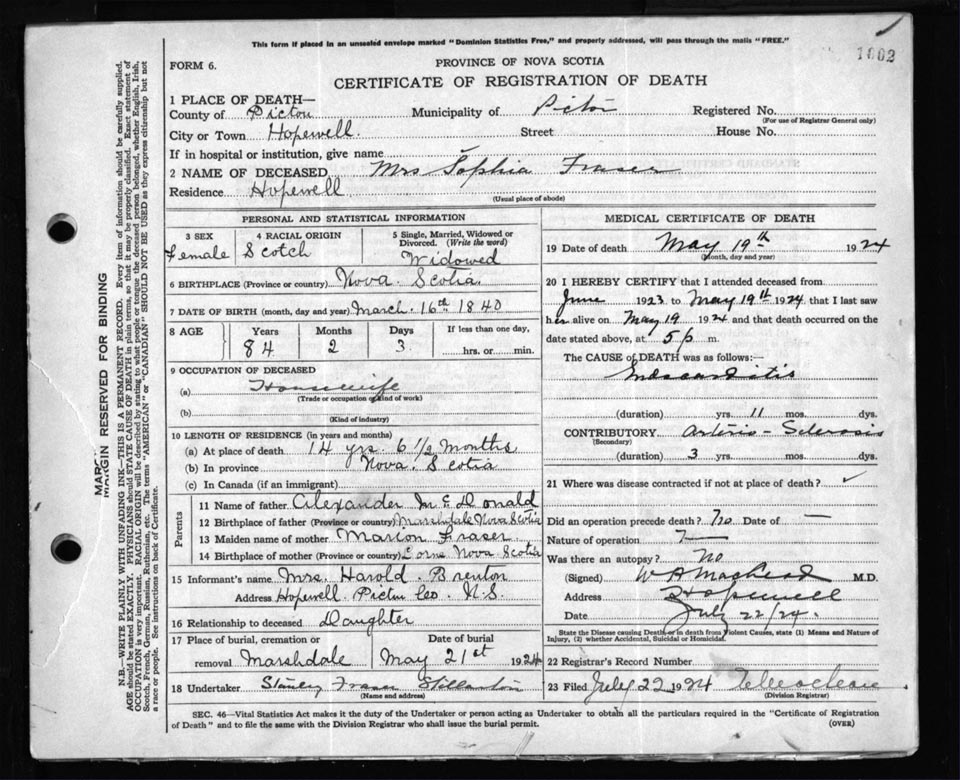 This form if placed in an unsealed envelope marked "Dominion Statistics Free," and properly addressed, will pass through the mails "FREE."
1002
FORM 6.
PROVINCE OF NOVA SCOTIA
CERTIFICATE OF REGISTRATION OF DEATH
1 PLACE OF DEATH—
County of Pictou Municipality of Pictou Registered No.
(For use of Registrar General only)
City or Town Hopewell. Street House No.
If in hospital or institution, give name
2 NAME OF DECEASED Mrs Sophia Fraser
Residence Hopewell
(Usual place of abode)
PERSONAL AND STATISTICAL INFORMATION
3 SEX 4 RACIAL ORIGIN 5 Single, Married, Widowed or Divorced. (Write the word)
Female Scotch Widowed
6 BIRTHPLACE (Province or country) Nova Scotia
7 DATE OF BIRTH (month, day and year) March 16th 1840
8 AGE Years Months Days If less than one day,
84 2 3 hrs. or min.
9 OCCUPATION OF DECEASED
(a) Housewife
(Trade or occupation or kind of work)
(b)
(Kind of industry)
10 LENGTH OF RESIDENCE (in years and months)
(a) At place of death 14 yrs. 6 1/2 Months
(b) In province Nova Scotia
(c) In Canada (if an immigrant)
Parents
11 Name of father Alexander McDonald
12 Birthplace of father (Province or country) Marshdale Nova Scotia
13 Maiden name of mother Marion Fraser
14 Birthplace of mother (Province or country) Lorne Nova Scotia
15 Informant's name Mrs. Harold Brenton
Address Hopewell Pictou Co. N.S.
16 Relationship to deceased Daughter
17 Place of burial, cremation or removal Marshdale
Date of burial May 21st 1924
18 Undertaker Stanley Fraser Stellarton
(Name and address)
MEDICAL CERTIFICATE OF DEATH
19 Date of death May 19th 1924
(Month, day and year)
20 I HEREBY CERTIFY that I attended deceased from
June 1923 to May 19th 1924, that I last saw
her alive on May 19 1924 and that death occurred on
date stated above, at 5 p m.
The CAUSE OF DEATH was as follows:—
Endocarditis
(duration) yrs. 11 mos. dys.
CONTRIBUTORY Arterio-Sclerosis
(Secondary)
(duration) 3 yrs. mos. dys.
21 Where was disease contracted if not at place of death? ✓
Did an operation precede death? No Date of —
Nature of operation —
Was there an autopsy? No
(Signed) M.D.
Address Hopewell
Date July 22/24.
State the Disease causing Death, or in death from Violent Causes, state (1) Means and Nature of Injury, (2) whether Accidental, Suicidal or Homicidal.
22 Registrar's Record Number
23 Filed July 22 1924
(Division Registrar)
SEC. 46—Vital Statistics Act makes it the duty of the Undertaker or person acting as Undertaker to obtain all the particulars required in the "Certificate of Registration
of Death" and to file the same with the Division Registrar who shall issue the burial permit. (OVER)
MARGIN RESERVED FOR BINDING
N.B.—WRITE PLAINLY WITH UNFADING INK—THIS IS A PERMANENT RECORD. Every item of information should be carefully supplied.
AGE should be stated EXACTLY. PHYSICIANS should STATE CAUSE OF DEATH in plain terms, so that it may be properly classified. Exact statement of
OCCUPATION is very important. RACIAL ORIGIN will be described by stating to what people or tongue the deceased person belonged, whether English, Irish,
Scotch, French, German, Russian, Ruthenian, etc. The terms "AMERICAN" or "CANADIAN" SHOULD NOT BE USED as they express citizenship but not
a race or people. See instructions on back of Certificate.